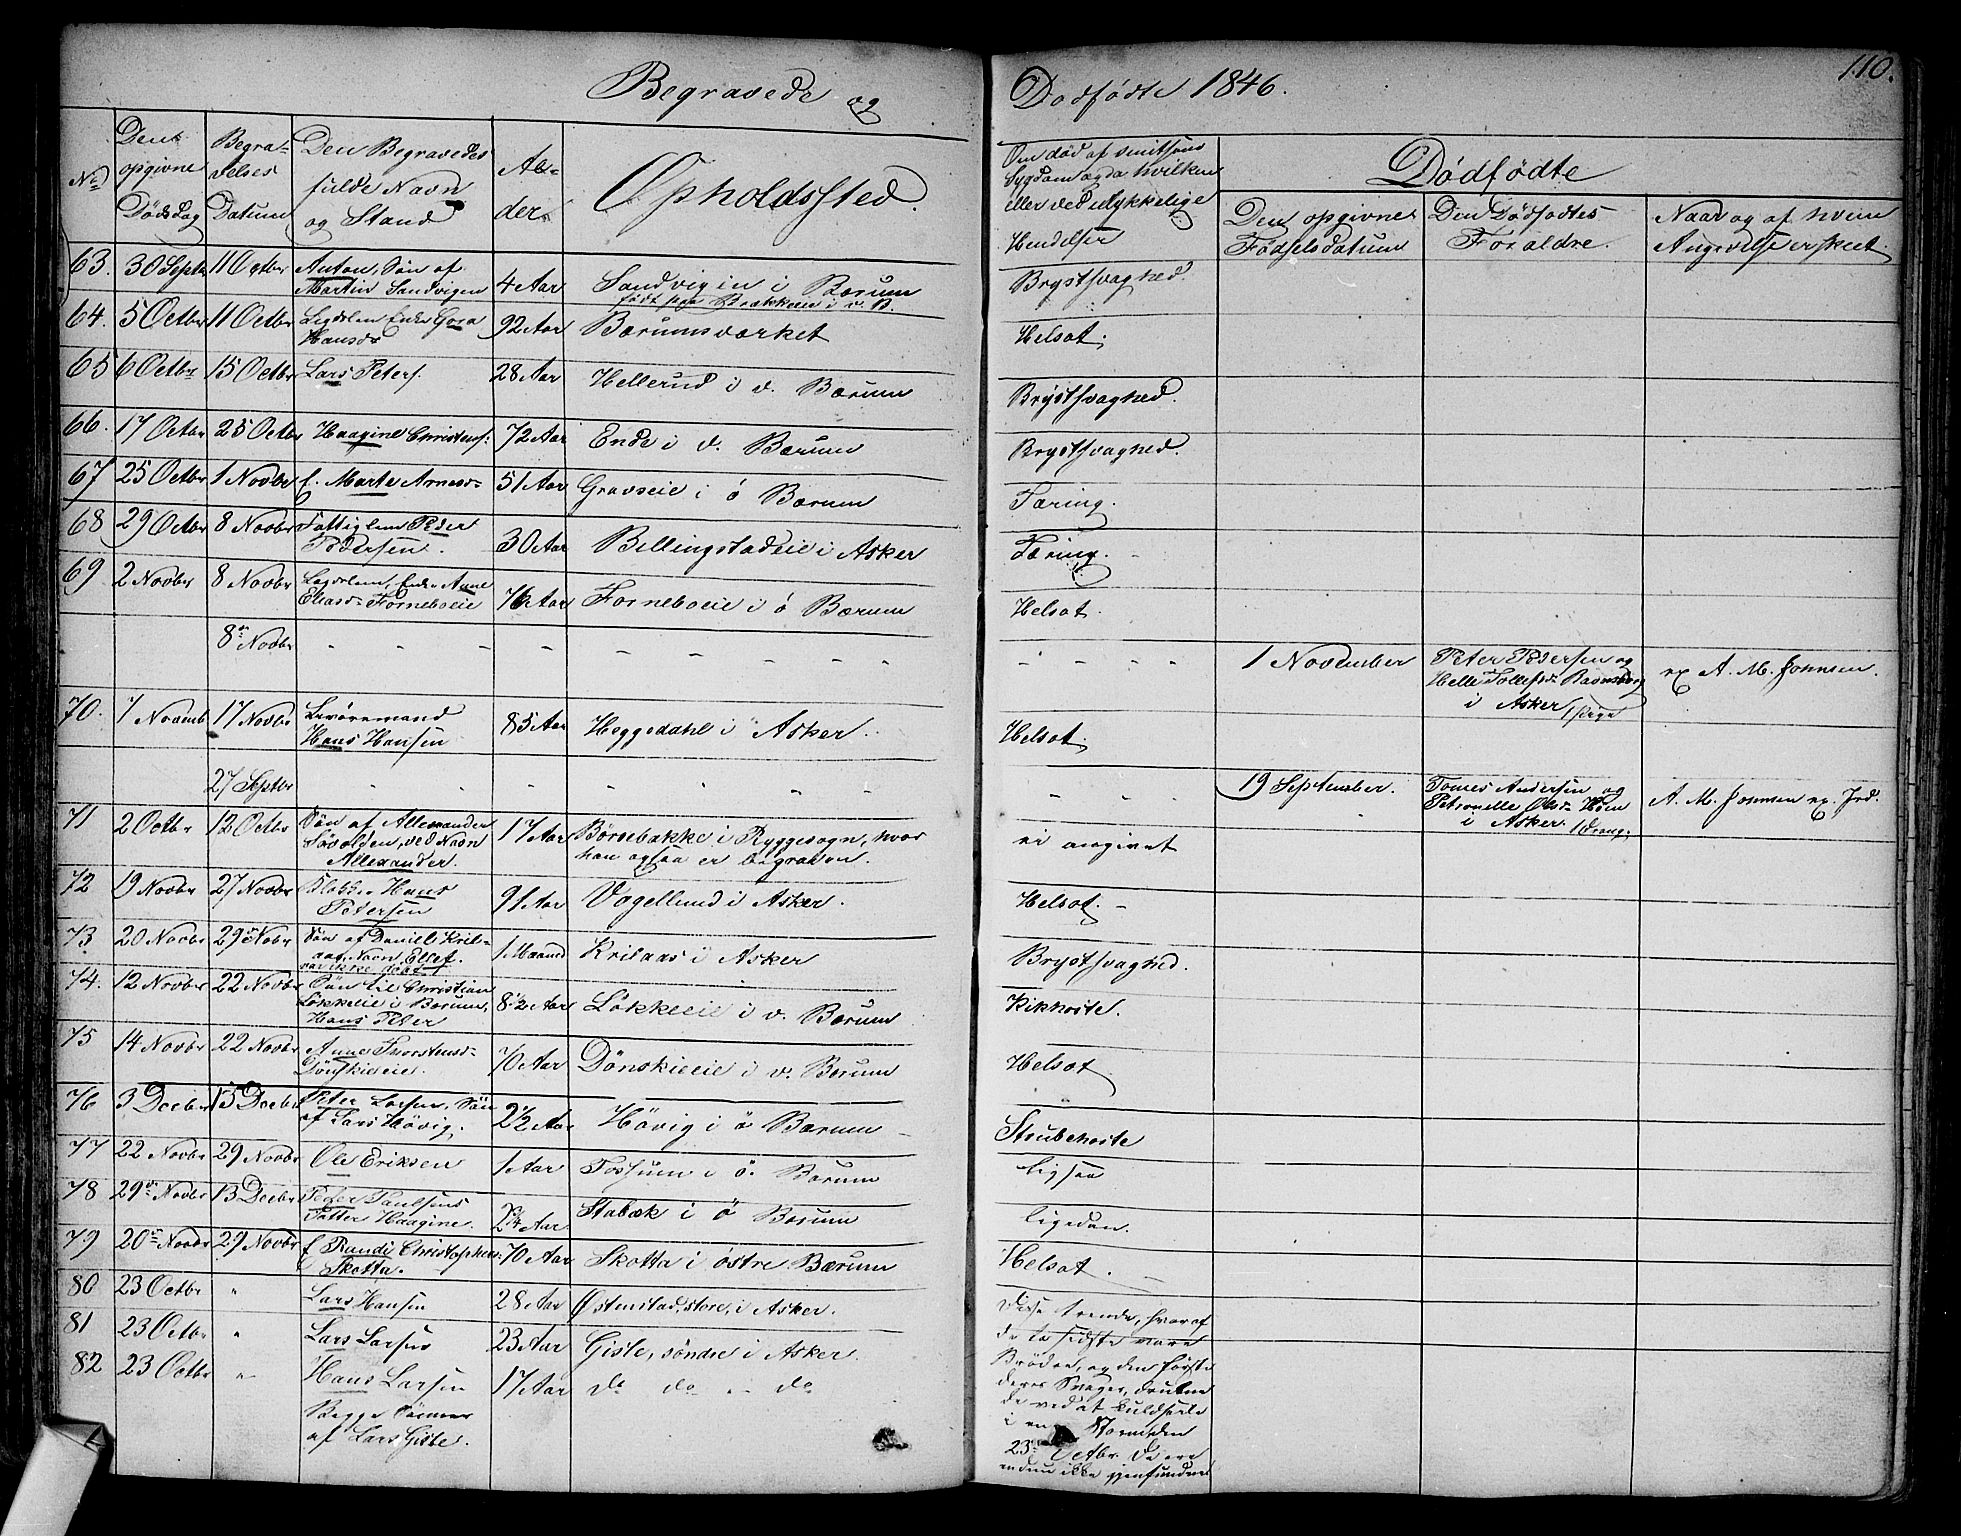 Begravede og Dødfødte 1846.
110.
No
Den opgivne Dødsdag
Begravelses Datum
Den Begravedes fulde Navn og Stand
Alder
Opholdssted.
Om død af smitsom Sygdom og da hvilken eller ved ulykkelige Hendelser
Dødfødte
Den opgivne Fødselsdatum
Den Dødfødtes Forældre.
Naar og af hvem Angivelse er skeet.
63. 30 Septr 11 Octbr Anton, Søn af Martin Sandvigen 4 Aar Sandvigen i Bærum født paa Brækkeeie i v. B. Brystsvaghed.
64. 5 Octbr 11 Octbr Lægdslem Enke Hansdr 92 Aar Bærumsværket Helsot.
65 6 Octbr 15 Octbr Lars Peters. 28 Aar Hellerud i v. Bærum Brystsvaghed.
66. 17 Octbr 25 Octbr Haagine Christens. 72 Aar Ende i v. Bærum Brystsvaghed.
67 25 Octbr 1 Novbr f. Marte Arnesd 51 Aar Gravseie i ø Bærum Tæring.
68 29 Octbr 8 Novbr Fattiglem Peder Pedersen. 30 Aar Billingstadeie i Asker Tæring.
69 2 Novbr 8 Novbr Lægdslem, Enke Anne Eliasd Forneboeie 76 Aar Forneboeie i ø Bærum Helsot.
8de Novbr - - - - 1 November Peter Pedersen og Helle Tollefsd Ravnsborg i Asker 1 Pige ex A. M. Jonsen.
70. 7 Novemb 17 Novbr Livøremand Hans Hansen 85 Aar Heggedahl i Asker. Helsot.
27 Septbr " " " " 19 September. Tomes Andersen og Petronelle Olsd Høen i Asker. 1 Dreng. A. M. Jonsen ex. Jrd.
71 2 Octbr 12 Octbr Søn af Allexander Søvolden, ved Navn Allexander. 17 Aar Børsebakke i Ryggesogn, hvor han ogsaa er begraven. ei angivet
72 19 Novbr 27 Novbr Klokker Hans Petersen 91 Aar Vogellund i Asker. Helsot.
73 20 Novbr 29 Novbr Søn af Daniel Krilaas, Navn Ellef. var ikke døbt 1 Maaned Krilaas i Asker Brystsvaghed.
74. 12 Novbr 22 Novbr Søn til Christian Løkkeeie i Bærum, Hans Peter 8½ Aar Løkkeeie i v. Bærum Kikhoste.
75 14 Novbr 22 Novbr Anne Torstensd Dønskieeie. 70 Aar Dønskieeie i v. Bærum Helsot
76 3 Decbr 13 Decbr Peter Larsen, Søn af Lars Høvig. 2½ Aar Høvig i ø Bærum Strubehoste
77 22 Novbr 29 Novbr Ole Eriksen 1 Aar Fossum i ø. Bærum ligesaa
78 29de Novbr 13 Decbr Peder Paulsens Datter Haagine. 2¼ Aar Stabæk i ø Bærum ligedan.
79 20de Novbr 29 Novbr f Randi Christophers. Skotta. 70 Aar Skotta i østre Bærum Helsot.
80 23 Octbr " Lars Hansen 28 Aar Østenstad, store, i Asker.
81 23 Octbr " Lars Larsen 23 Aar Gisle, søndre i Asker.
82 23 Octbr " Hans Larsen 17 Aar do do " do
Begge Sønner af Lars Gisle.
Disse trende, hvoraf
de to sidste vare
Brødre, og den første
deres Svoger, druknede
ved at kuldseile
i en Storm den
23de Octbr. De ere
endnu ikke gjenfundne